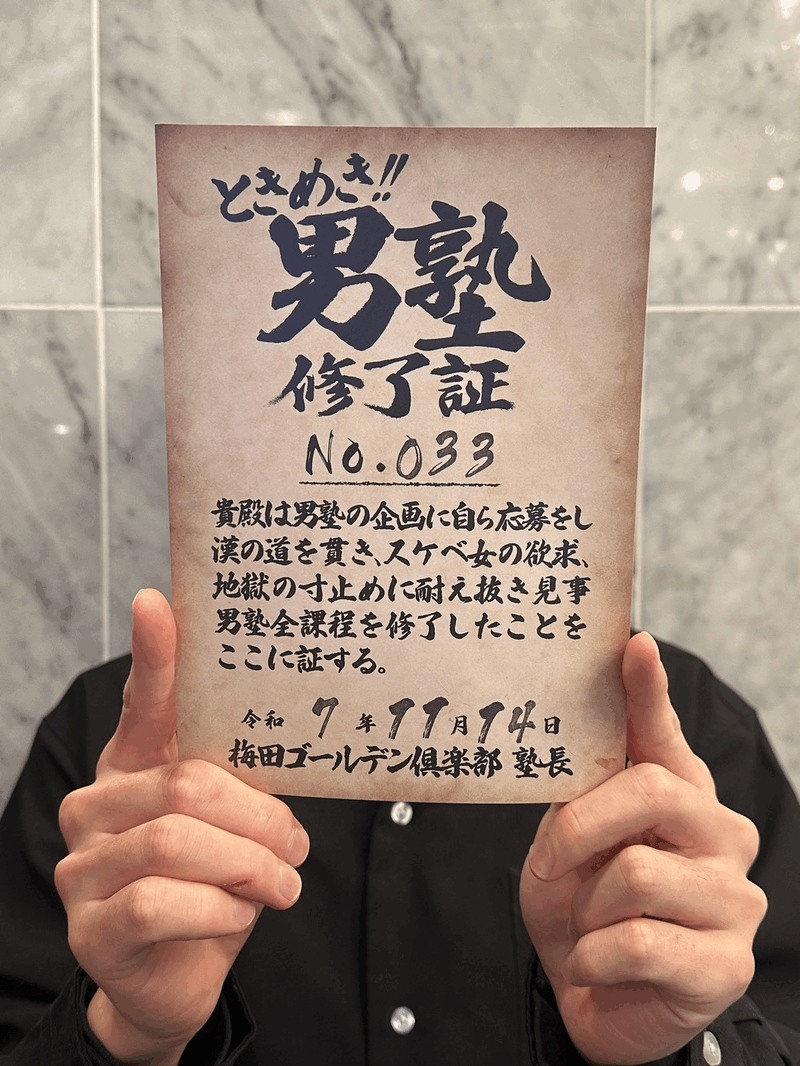 ときめき!!
男塾
修了証
No.033
貴殿は男塾の企画に自ら応募をし
漢の道を貫き、スケベ女の欲求、
地獄の寸止めに耐え抜き見事
男塾全課程を修了したことを
ここに証する。
令和 7 年 11 月 14 日
梅田ゴールデン倶楽部 塾長